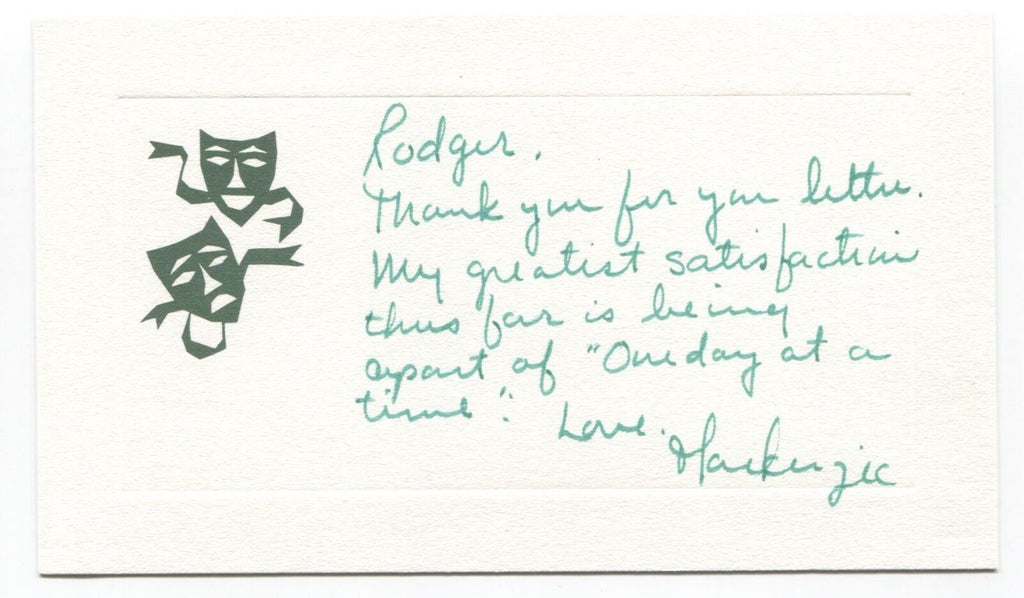 Rodger,
Thank you for you letter.
My greatest satisfaction
thus far is being
apart of "One day at a
time".
Love,
Mackenzie